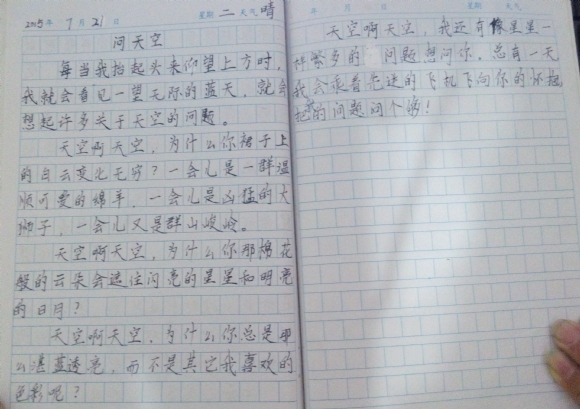 2015年 7月 21日 星期 二 天气 晴
问天空
每当我抬起头来仰望上方时，
我就会看见一望无际的蓝天，就会
想起许多关于天空的问题。
天空啊天空，为什么你裙子上
的白云变化无穷？一会儿是一群温
顺可爱的绵羊，一会儿是凶猛的大
狮子，一会儿又是群山峻岭。
天空啊天空，为什么你那棉花
般的云朵会遮住闪亮的星星和明亮
的日月？
天空啊天空，为什么你总是那
么湛蓝透亮，而不是其它我喜欢的
色彩呢？
年 月 日 星期 天气
天空啊天空，我还有像星星一
样繁多的问题想问你，总有一天
我会乘着先进的飞机飞向你的怀抱
把我的问题问个够！